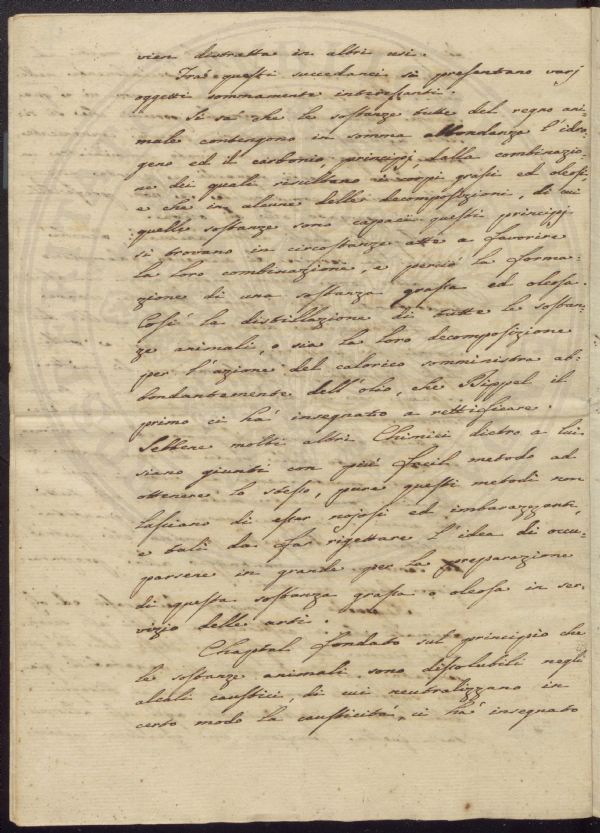 vien distratta in altri usi.
Tra questi succedanei si presentano varj
oggetti sommamente interessanti.
Si sa che le sostanze tutte del regno ani-
male contengono in somma abbondanza l'idro-
geno ed il carbonio principj dalla combinazio-
ne dei quali risultano i corpi grassi ed oleosi,
e che in alcune delle decomposizioni, di cui
quelle sostanze sono capaci questi principj
si trovano in circostanze atte a favorire
la loro combinazione, e perciò la forma-
zione di una sostanza grassa ed oleosa.
Così la distillazione di tutte le sostan-
ze animali, o sia la loro decomposizione
per l'azione del calorico somministra ab-
bondantemente dell'olio, che Dippel il
primo ci há insegnato a rettificare.
Sebbene molti altri Chimici dietro a lui
siano giunti con più facil metodo ad
ottenere lo stesso, pure questi metodi non
lasciano di esser nojosi ed imbarazzanti,
e tali da far rigettare l'idea di occu-
parsene in grande per la preparazione
di questa sostanza grassa o oleosa in ser-
vizio delle arti.
Chaptal fondato sul principio che
le sostanze animali sono dissolubili negli
alcali caustici, di cui neutralizzano in
certo modo la causticità, ci há insegnato